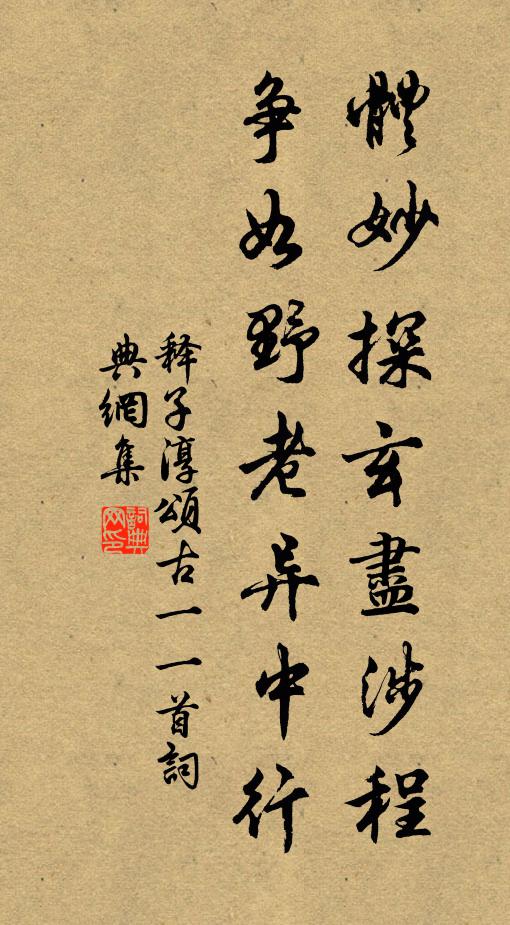 體妙探玄盡涉程
争如野老异中行
释子淳頌古一一首詞
典網集
詞典網印